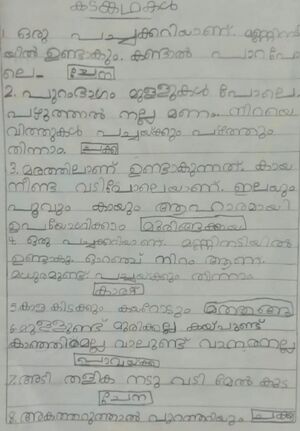 കടങ്കഥകൾ
1. ഒരു പച്ചക്കറിയാണ്. മണ്ണിന്ന
യിൽ ഉണ്ടാകും. കണ്ടാൽ പാറപോ
ലെ- ചേന
2. പുറംഭാഗം മുള്ളുകൾ പോലെ
പഴുത്താൽ നല്ല മണം നിറയെ
വിത്തുകൾ പച്ചയ്ക്കും പഴുത്തതും
തിന്നാം. ചക്ക
3. മരത്തിലാണ് ഉണ്ടാകുന്നത്. കായ
നീണ്ട വടിപോലെയാണ്. ഇലയും
പൂവും കായും ആഹാരമായി
ഉപയോഗിക്കാം മുരിങ്ങക്കായ
4. ഒരു പച്ചക്കറിയാണ്. മണ്ണിനടിയിൽ
ഉണ്ടാകും. ഓറഞ്ച് നിറം ആണ്.
മധുരമുണ്ട്. പച്ചയ്ക്കും തിന്നാം
കാരറ്റ്
5. കാള കിടക്കും കയറോടും മത്തങ്ങ
6. മുള്ളുണ്ട് മുരിക്കല്ല കയ്പുണ്ട്
കാഞ്ഞിരമല്ല വാലുണ്ട് വാനരനല്ല
പാവയ്ക്ക
7. അടി തളിക നടു വടി മേൽ കുട
ചേന
8. അകത്തറുത്താൽ പുറത്തറിയും ചക്ക